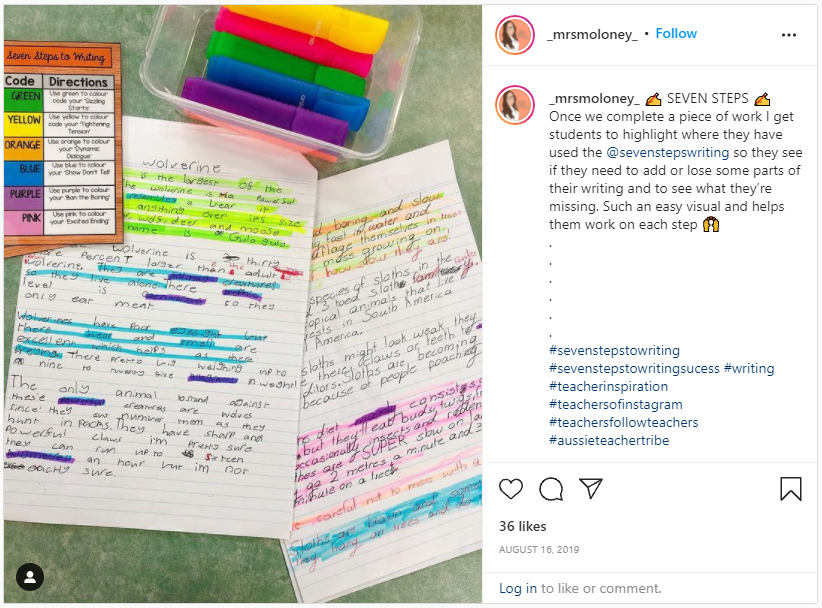 Seven Steps to Writing
Code Directions
GREEN Use green to colour code your 'Sizzling Starts'
YELLOW Use yellow to colour code your 'Tightening Tension'
ORANGE Use orange to colour code your 'Dynamic Dialogue'
BLUE Use blue to colour code your 'Show Don't Tell'
PURPLE Use purple to colour code your 'Ban the Boring'
PINK Use pink to colour code your 'Excited Ending'
wolverine
is the largest of the
The wolverine is a powerful
resembles a bear it
anything over it's size
deer and moose
name is Gulo gulo
wolverine is thirty
percent larger than the adult
wolverine. They are creatures
so they live alone. there
level is carnivorous so they
only eat meat.
Wolverines have poor eyesight but
there hear and smell are
excellent which helps as there
preying. There pretty big weighing up to
nine to twenty five kilograms in weight
The only animal to stand against
these powerful creatures are wolves
since they out number them as they
hunt in packs. They have sharp and
powerful claws im pretty sure
they can run up to sixteen
an hour but im not
exactly sure.
d boring and slow
fast in water and
flage themselves in trees
moss growing on
how slow they are!
species of sloths in the
3 toed sloths
opical animals that live
ests in South America
America.
sloths might look weak, they
there claws or teeth to
ditors. Sloths are becoming
because of people poaching
diet consists
but they'll eat buds, twigs
occasionally insects and
hes are SUPER slow on
go 2 metres a minute and 3
minute on a tree
careful not to mess with a
Sloths are
hang in trees and
_mrsmoloney_ • Follow
_mrsmoloney_ ✍ SEVEN STEPS ✍
Once we complete a piece of work I get
students to highlight where they have
used the @sevenstepswriting so they see
if they need to add or lose some parts of
their writing and to see what they're
missing. Such an easy visual and helps
them work on each step
.
.
.
.
.
#sevenstepstowriting
#sevenstepstowritingsucess #writing
#teacherinspiration
#teachersofinstagram
#teachersfollowteachers
#aussieteachertribe
36 likes
AUGUST 16, 2019
Log in to like or comment.